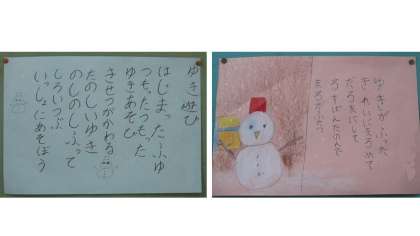 ゆき遊び
はじまったふゆ
つもったつもった
ゆきあそび
きせつがかわる
たのしいゆき
のしのしふって
しろいつぶ
いっしょにあそぼう
ゆきがふった
きれいにまるめて
だるまにして